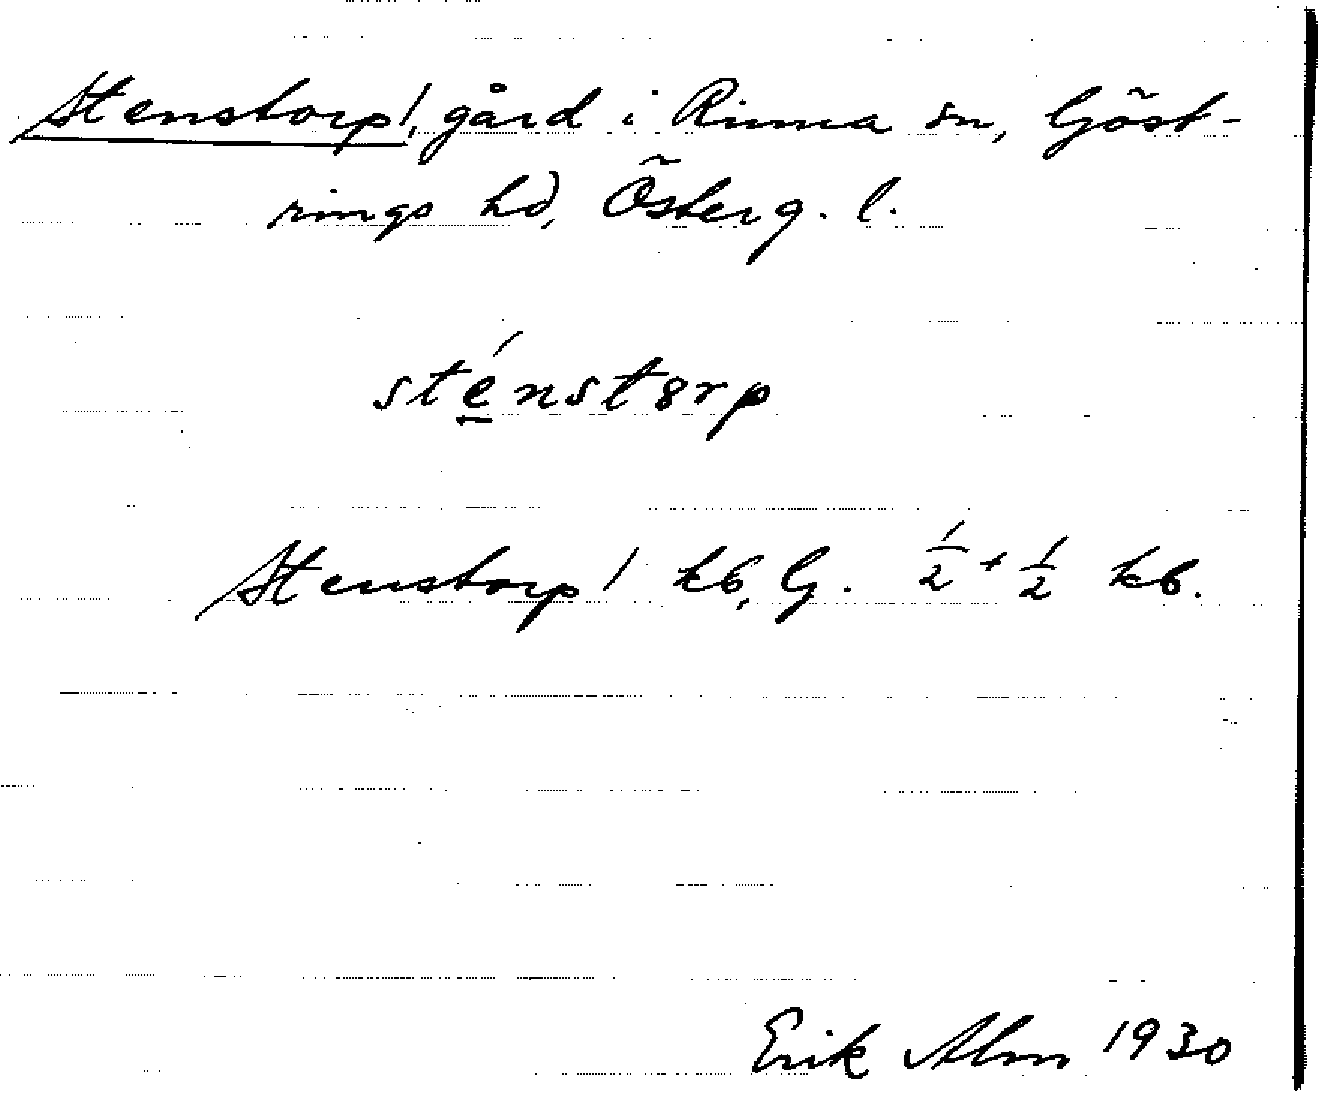 Stenstorp 1, gård i Rinna sn, Göst-
rings hd, Österg. l.
sténst8rp
Stenstorp 1 kb, G. 1/2 + 1/2 kb.
Erik Alm 1930